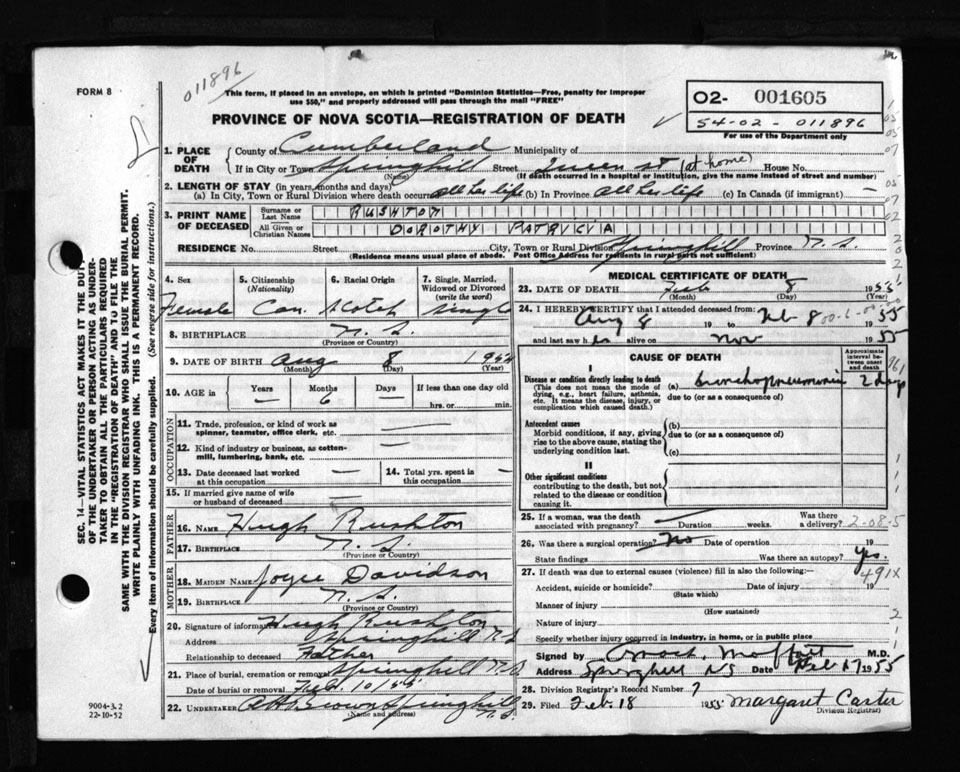 011896
FORM 8
This form, if placed in an envelope, on which is printed "Dominion Statistics—Free, penalty for improper
use $50," and properly addressed will pass through the mail "FREE"
PROVINCE OF NOVA SCOTIA—REGISTRATION OF DEATH
02- 001605
54-02-011896
For use of the Department only
SEC. 14—VITAL STATISTICS ACT MAKES IT THE DUTY
OF THE UNDERTAKER OR PERSON ACTING AS UNDER-
TAKER TO OBTAIN ALL THE PARTICULARS REQUIRED
IN THE "REGISTRATION OF DEATH" AND TO FILE THE
SAME WITH THE DIVISION REGISTRAR WHO SHALL ISSUE THE BURIAL PERMIT.
WRITE PLAINLY WITH UNFADING INK. THIS IS A PERMANENT RECORD.
Every item of information should be carefully supplied. (See reverse side for instructions.)
1. PLACE OF DEATH
County of Cumberland Municipality of
If in City or Town Springhill Street Queen St (at home) House No.
(Name) (If death occurred in a hospital or institution, give the name instead of street and number)
2. LENGTH OF STAY (in years, months and days)
(a) In City, Town or Rural Division where death occurred all her life (b) In Province all her life (c) In Canada (if immigrant) —
3. PRINT NAME OF DECEASED
Surname or Last Name RUSHTON
All Given or Christian Names DOROTHY PATRICIA
RESIDENCE No. Street City, Town or Rural Division Springhill Province N.S.
(Residence means usual place of abode. Post Office Address for residents in rural parts not sufficient)
4. Sex Female
5. Citizenship (Nationality) Can.
6. Racial Origin Scotch
7. Single, Married, Widowed or Divorced (write the word) Single
8. BIRTHPLACE N.S.
(Province or Country)
9. DATE OF BIRTH Aug 8 1954
(Month) (Day) (Year)
10. AGE in Years — Months 6 Days — If less than one day old
hrs. or min.
OCCUPATION
11. Trade, profession, or kind of work as
spinner, teamster, office clerk, etc. —
12. Kind of industry or business, as cotton-
mill, lumbering, bank, etc. —
13. Date deceased last worked
at this occupation —
14. Total yrs. spent in
this occupation —
15. If married give name of wife
or husband of deceased —
FATHER
16. NAME Hugh Rushton
17. BIRTHPLACE N.S.
(Province or Country)
MOTHER
18. MAIDEN NAME Joyce Davidson
19. BIRTHPLACE N.S.
(Province or Country)
20. Signature of informant Hugh Rushton
Address Springhill N.S.
Relationship to deceased Father
21. Place of burial, cremation or removal Springhill N.S.
Date of burial or removal Feb. 10/55
22. UNDERTAKER Brown Springhill N.S.
(Name and address)
9004-3.2
22-10-52
MEDICAL CERTIFICATE OF DEATH
23. DATE OF DEATH Feb 8 1955
(Month) (Day) (Year)
24. I HEREBY CERTIFY that I attended deceased from:
Aug 8 19 to Feb 8 1955
and last saw her alive on Nov 1955
CAUSE OF DEATH
Approximate interval between onset and death
I
Disease or condition directly leading to death
(This does not mean the mode of dying, e.g., heart failure, asthenia, etc. It means the disease, injury, or complication which caused death.)
(a) bronchopneumonia 2 days
due to (or as a consequence of)
Antecedent causes
Morbid conditions, if any, giving rise to the above cause, stating the underlying condition last.
(b)
due to (or as a consequence of)
(c)
II
Other significant conditions
contributing to the death, but not related to the disease or condition causing it.
25. If a woman, was the death
associated with pregnancy? — Duration weeks. Was there a delivery?
2-08-5
26. Was there a surgical operation? No Date of operation 19
State findings Was there an autopsy? Yes.
27. If death was due to external causes (violence) fill in also the following:—
491X
Accident, suicide or homicide? Date of injury 19
(State which)
Manner of injury
(How sustained)
Nature of injury
Specify whether injury occurred in industry, in home, or in public place
Signed by Moffatt M.D.
Address Springhill NS Date Feb 17 1955
28. Division Registrar's Record Number 7
29. Filed Feb. 18 1955 Margaret Carter
Division Registrar